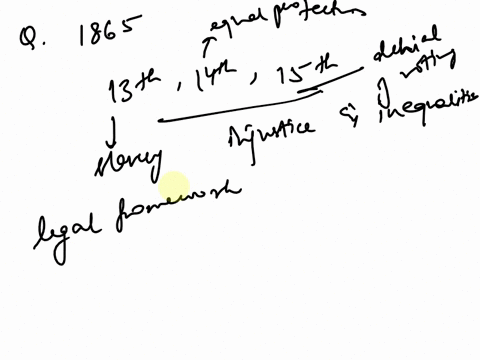 Q. 1865
equal protections
13th, 14th, 15th
denial
of voting
slavery
injustice & inequalities
legal framework